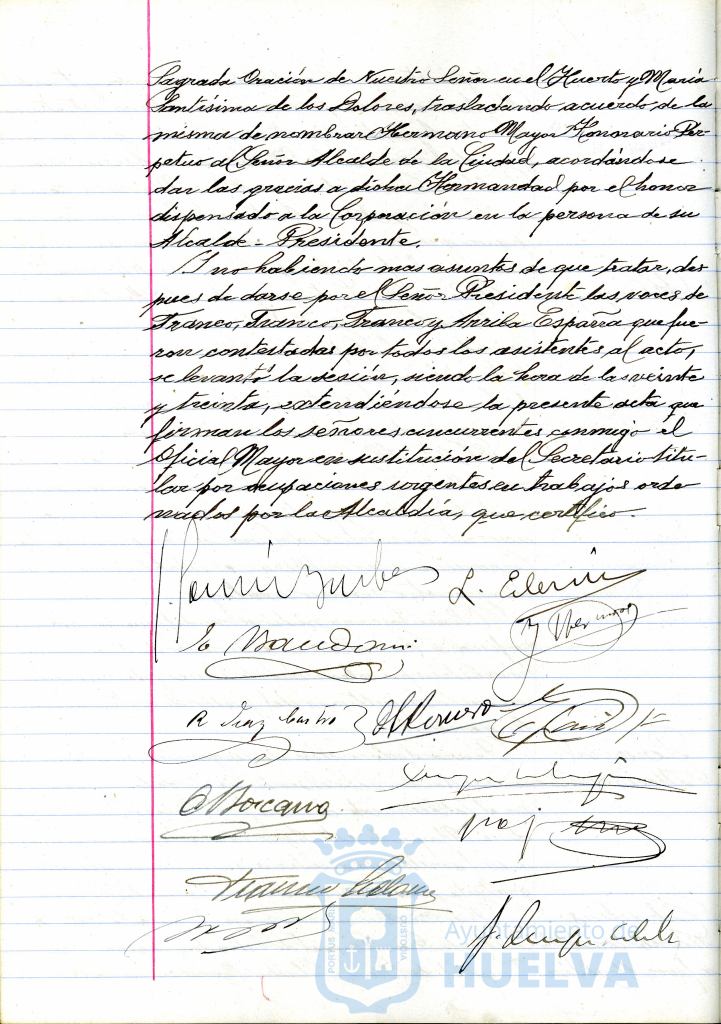 Sagrada Oración de Nuestro Señor en el Huerto y María
Santísima de los Dolores, trasladando acuerdo de la
misma de nombrar Hermano Mayor Honorario Per-
petuo al Señor Alcalde de la Ciudad, acordándose
dar las gracias a dicha Hermandad por el honor
dispensado a la Corporación en la persona de su
Alcalde-Presidente.
Y no habiendo mas asuntos de que tratar, des
pues de darse por el Señor Presidente las voces de
Franco, Franco, Franco y Arriba España que fue-
ron contestadas por todos los asistentes al acto,
se levantó la sesión, siendo la hora de las veinte
y treinta, extendiéndose la presente acta que
firman los señores concurrentes conmigo el
Oficial Mayor en sustitución del Secretario titu-
lar por ocupaciones urgentes en trabajos orde
nados por la Alcaldía, que certifico.
R. Diaz Castro
Romero
Ayuntamiento de
HUELVA
PORTUS MARIS
CUSTODIA